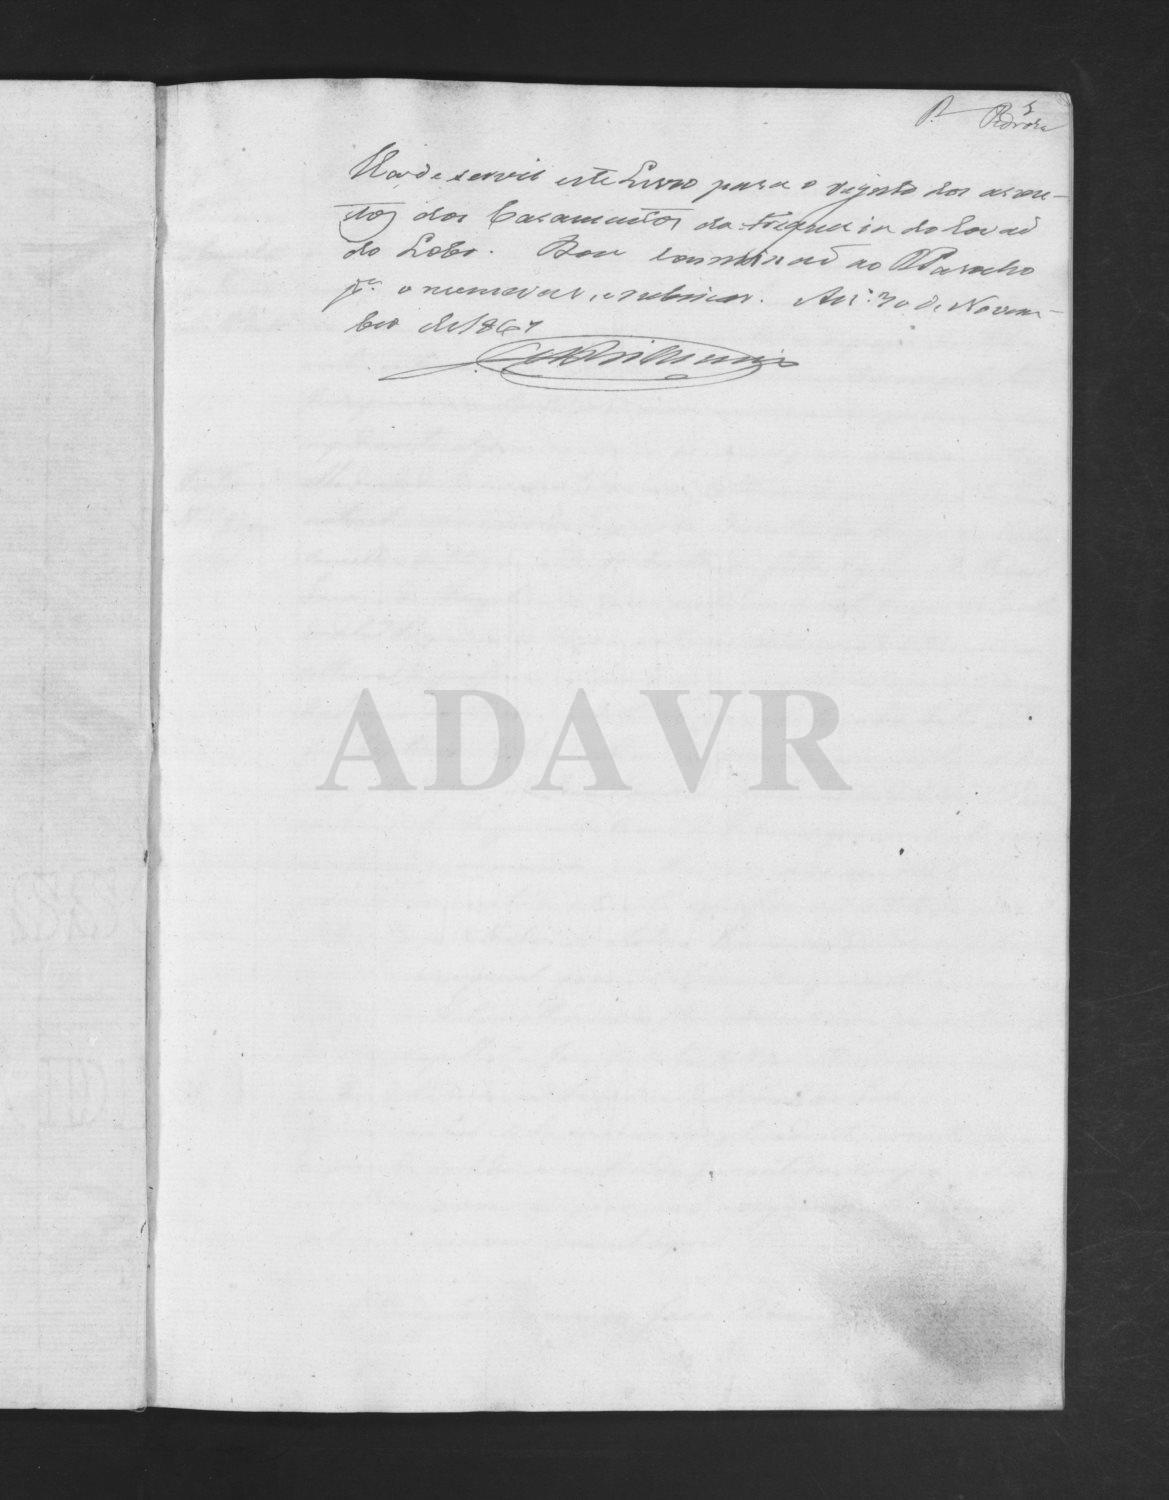 P. Pedrosa
Ha de servir este Livro para o registo dos assen-
tos dos Casamentos da Freguesia do Covaõ
do Lobo. Dou commissaõ ao R. Parocho
pa. o numerar, e rubricar. Avr.º 30 de Novem-
bro de 1867
ADAVR